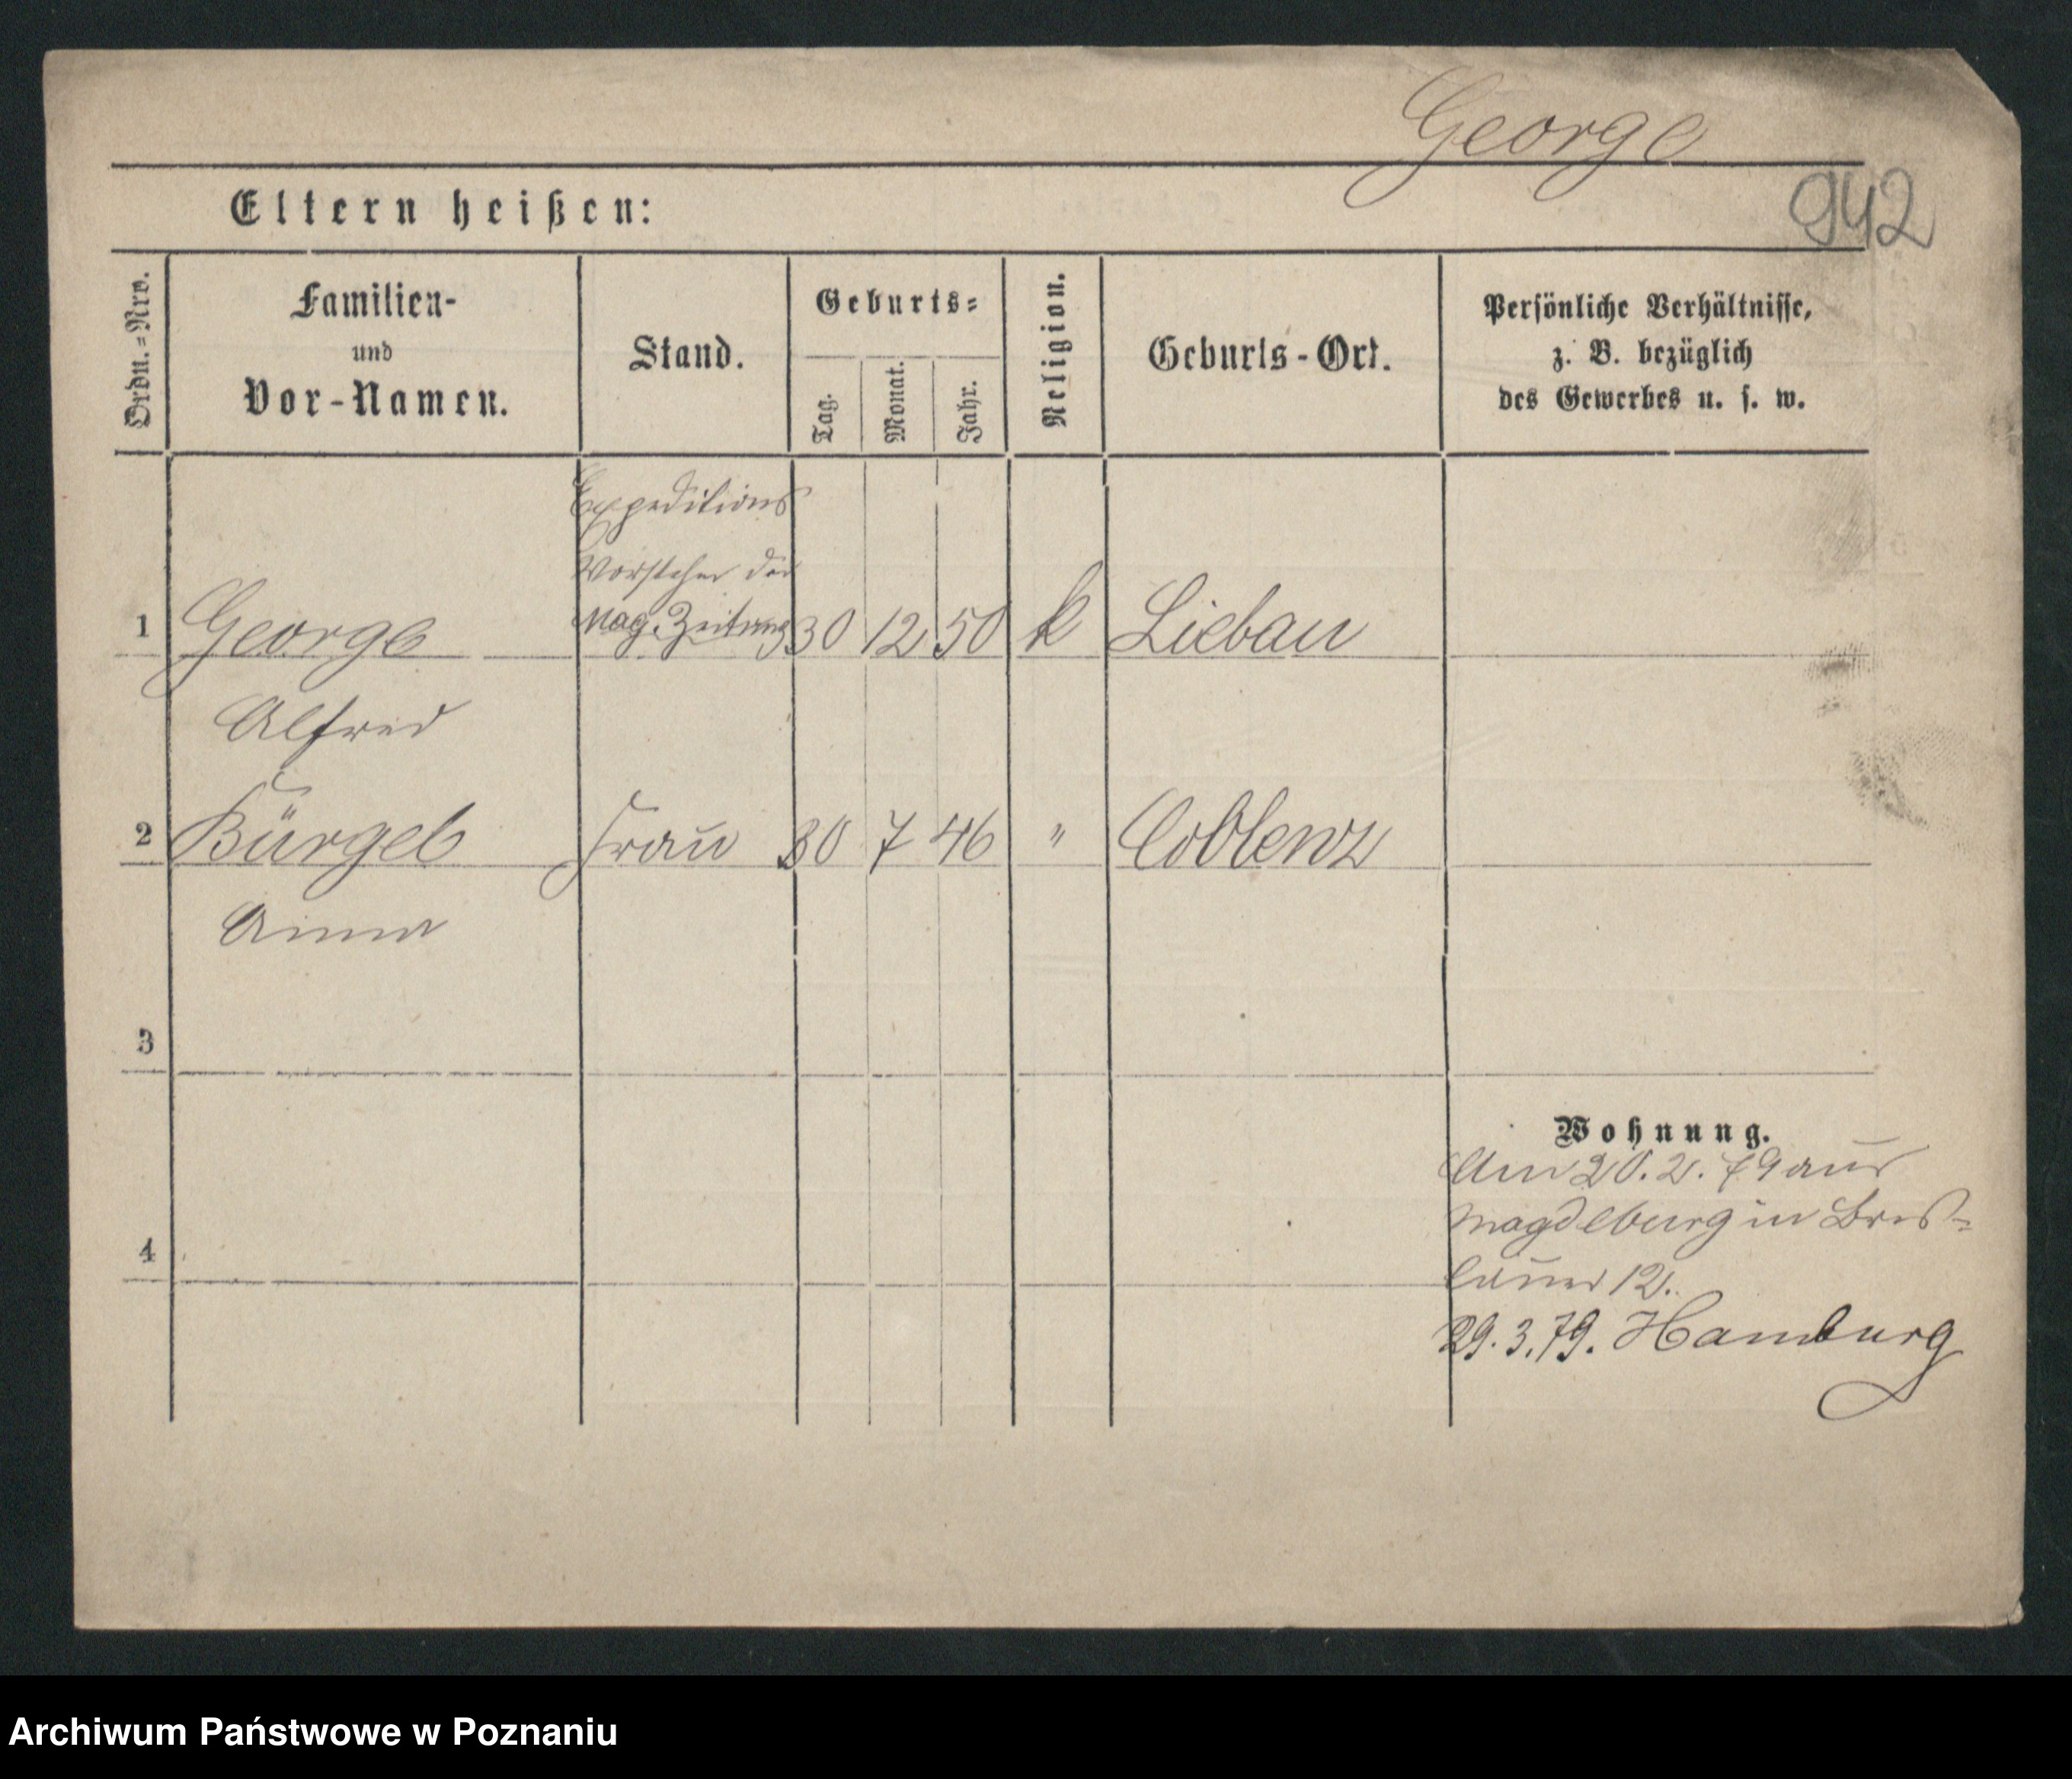 George
942
Eltern heißen:
Ordn.=Nro.
Familien-
und
Vor-Namen.
Stand.
Geburts=
Tag.
Monat.
Jahr.
Religion.
Geburts-Ort.
Persönliche Verhältnisse,
z. B. bezüglich
des Gewerbes u. s. w.
Expeditions
Vorsteher der
Mag. Zeitung
1 George 30 12 50 k Liebau
Alfred
2 Bürgel Frau 30 7 46 " Coblenz
Anna
3
Wohnung.
Am 20. 2. 79 aus
Magdeburg in Bres-
4
lauer 12.
29. 3. 79. Hamburg
Archiwum Państwowe w Poznaniu